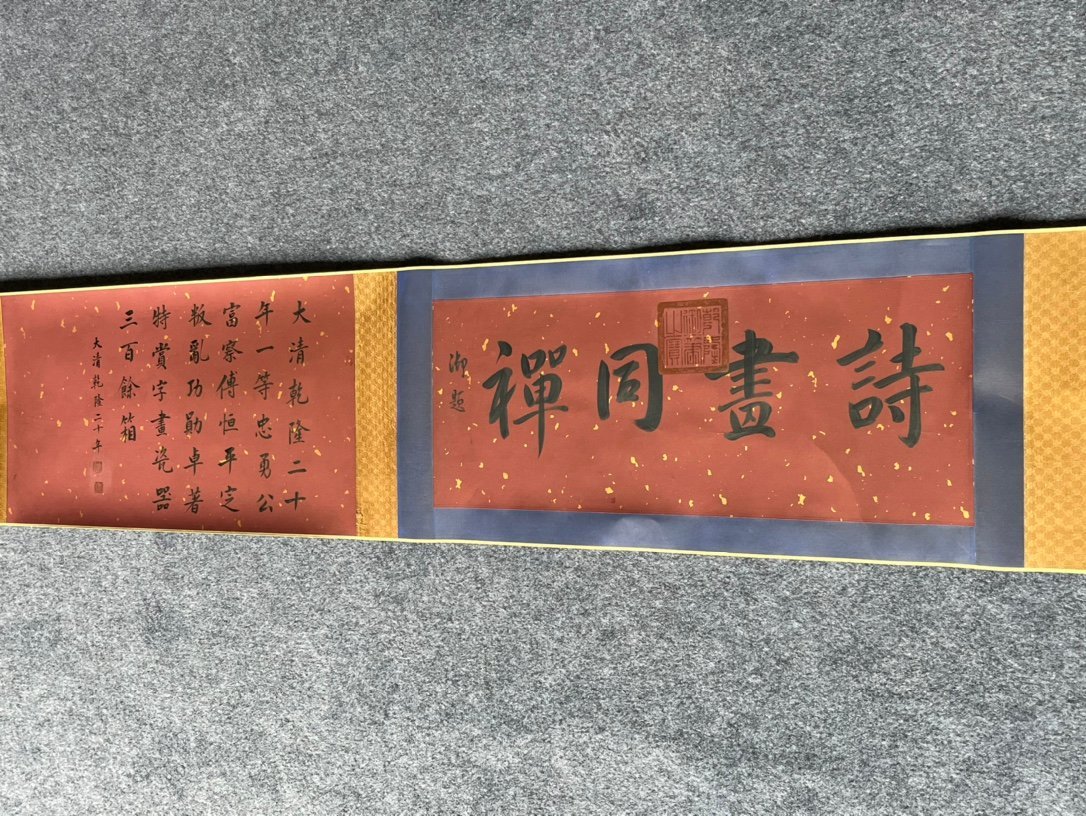 詩畫同禪
御題
乾隆御筆之寶
大清乾隆二十
年一等忠勇公
富察傅恒平定
叛亂功勛卓著
特賞字畫瓷器
三百餘箱
大清乾隆二十年